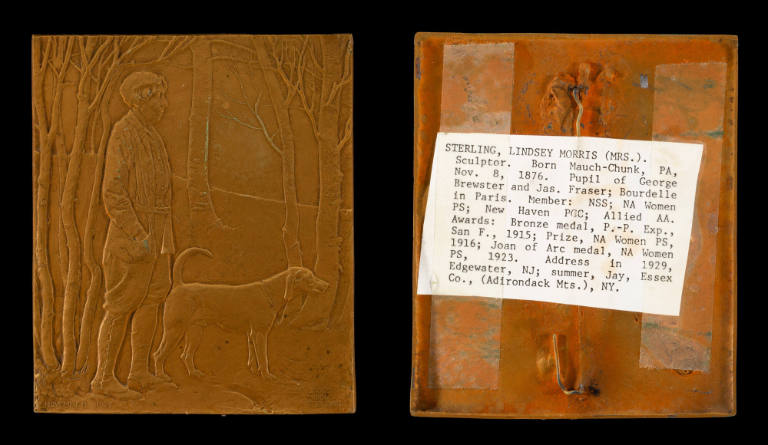 STERLING, LINDSEY MORRIS (MRS.).
Sculptor. Born Mauch-Chunk, PA,
Nov. 8, 1876. Pupil of George
Brewster and Jas. Fraser; Bourdelle
in Paris. Member: NSS; NA Women
PS; New Haven PCC; Allied AA.
Awards: Bronze medal, P.-P. Exp.,
San F., 1915; Prize, NA Women PS,
1916; Joan of Arc medal, NA Women
PS, 1923. Address in 1929,
Edgewater, NJ; summer, Jay, Essex
Co., (Adirondack Mts.), NY.